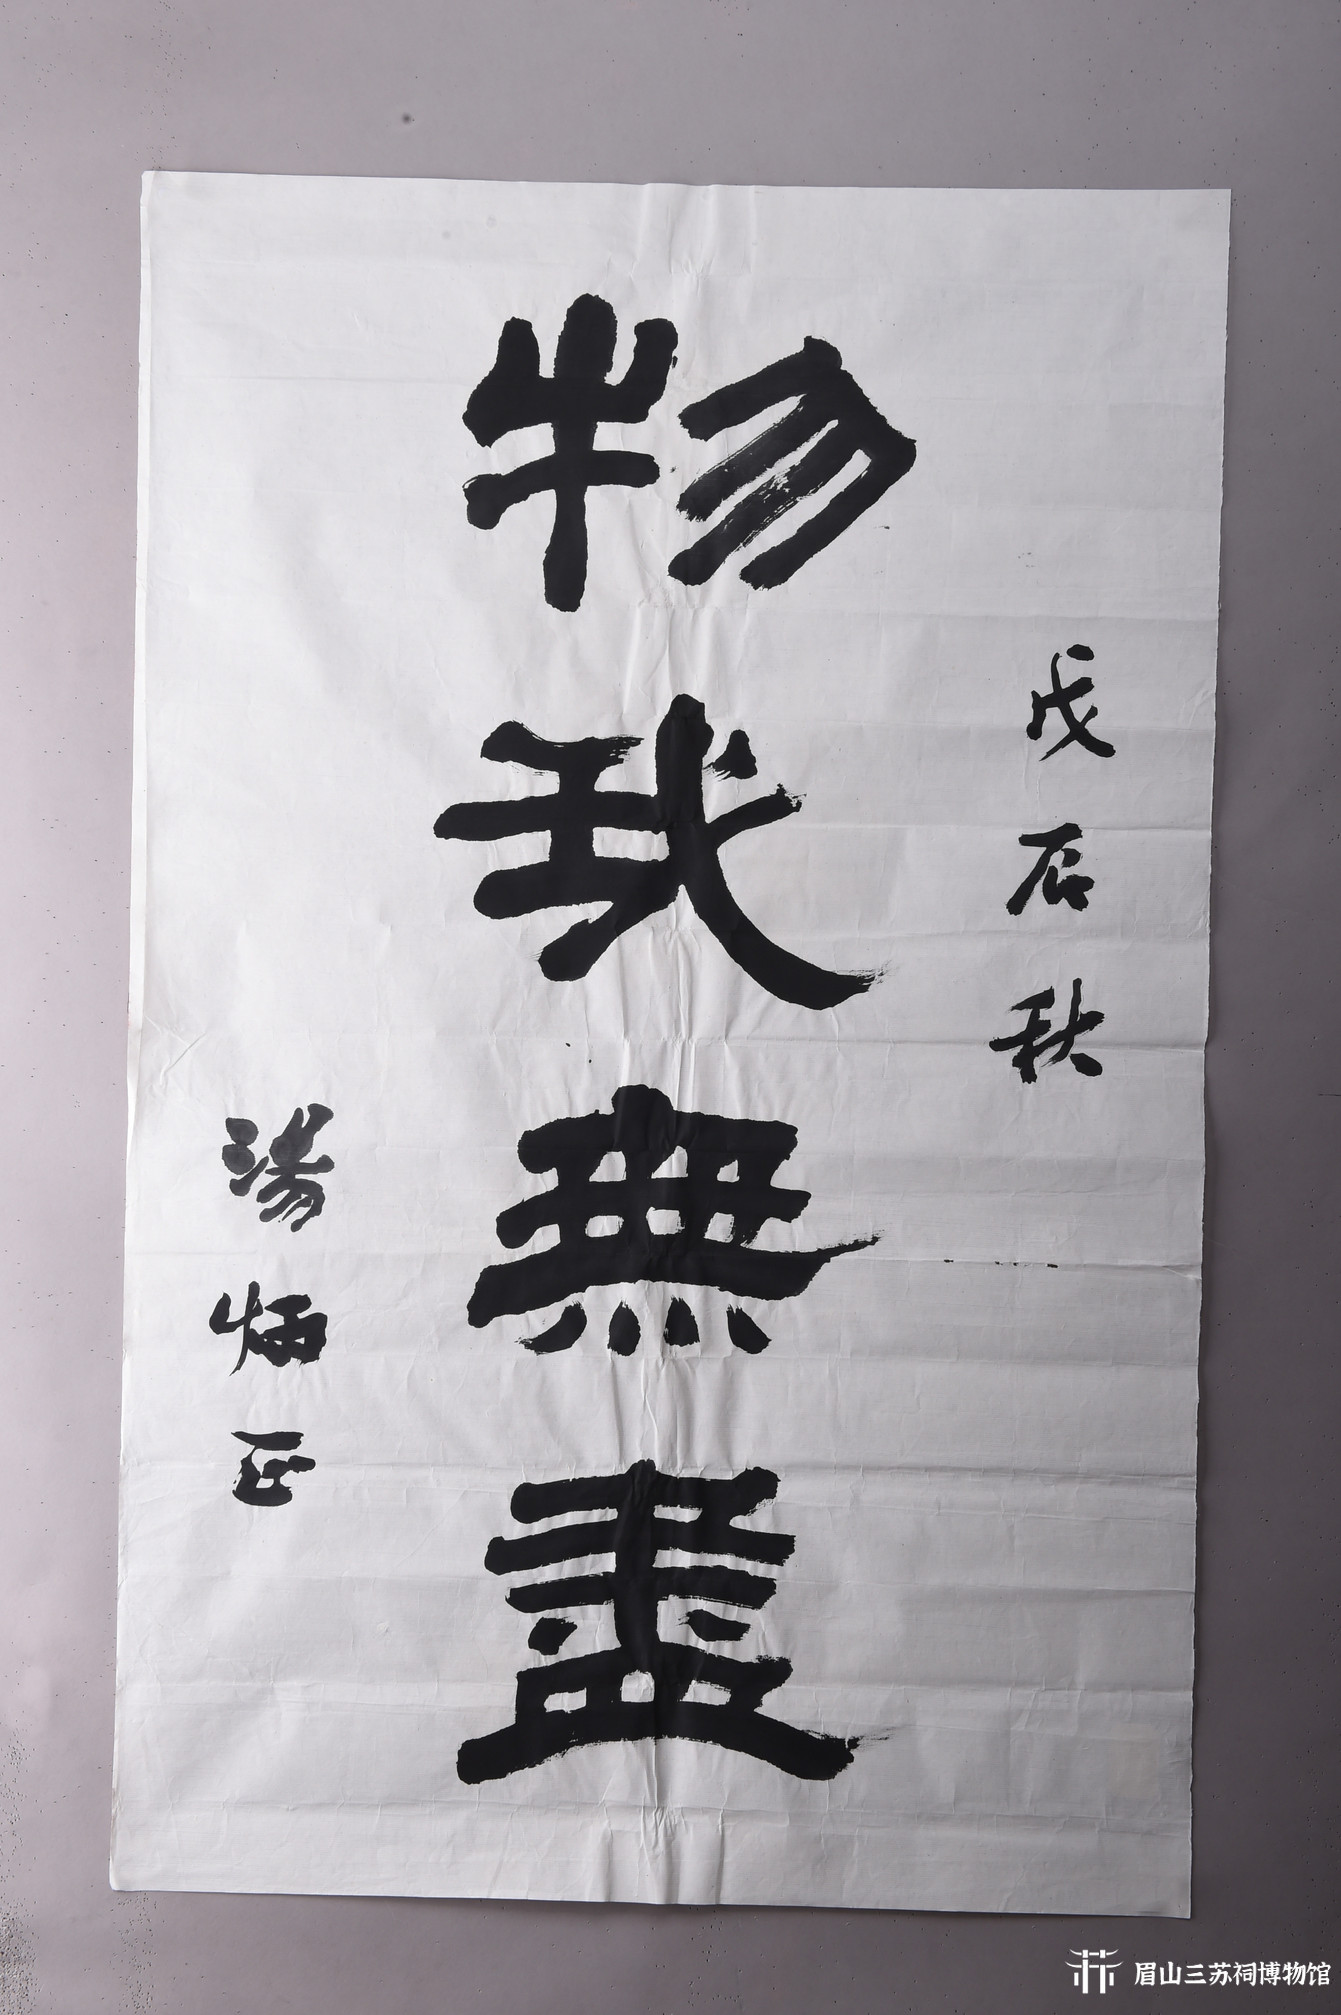 戊辰秋
物我無盡
湯炳正
眉山三苏祠博物馆